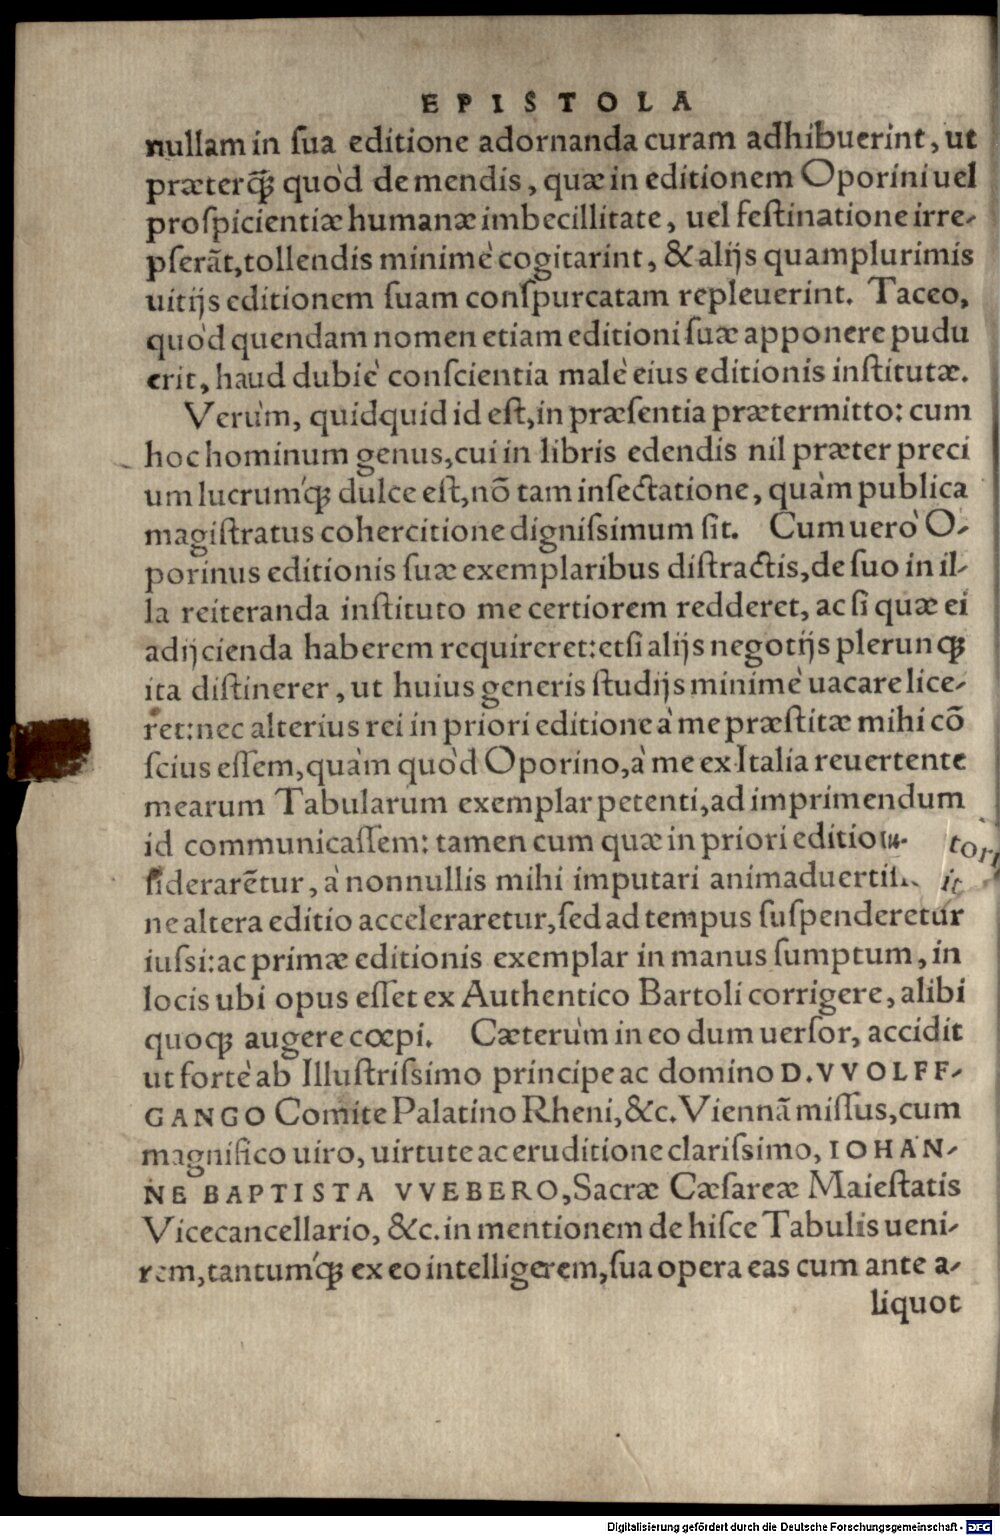 EPISTOLA
nullam in ſua editione adornanda curam adhibuerint, ut
præterq̃ꝫ quòd de mendis, quæ in editionem Oporini uel
proſpicientiæ humanæ imbecillitate, uel feſtinatione irre-
pſerãt, tollendis minimè cogitarint, & alijs quamplurimis
uitijs editionem ſuam conſpurcatam repleuerint. Taceo,
quòd quendam nomen etiam editioni ſuæ apponere pudu
erit, haud dubiè conſcientia malè eius editionis inſtitutæ.
Verùm, quidquid id eſt, in præſentia prætermitto: cum
hoc hominum genus, cui in libris edendis nil præter preci
um lucrumq́ꝫ dulce eſt, nõ tam inſectatione, quàm publica
magiſtratus cohercitione digniſsimum ſit. Cum uerò O-
porinus editionis ſuæ exemplaribus diſtractis, de ſuo in il-
la reiteranda inſtituto me certiorem redderet, ac ſi quæ ei
adijcienda haberem requireret: etſi alijs negotijs plerunqꝫ
ita diſtinerer, ut huius generis ſtudijs minimè uacare lice-
ret: nec alterius rei in priori editione à me præſtitæ mihi cõ
ſcius eſſem, quàm quòd Oporino, à me ex Italia reuertente
mearum Tabularum exemplar petenti, ad imprimendum
id communicaſſem: tamen cum quæ in priori editio
ſiderarẽtur, à nonnullis mihi imputari animaduerti
ne altera editio acceleraretur, ſed ad tempus ſuſpenderetur
iuſsi: ac primæ editionis exemplar in manus ſumptum, in
locis ubi opus eſſet ex Authentico Bartoli corrigere, alibi
quoqꝫ augere cœpi. Cæterùm in eo dum uerſor, accidit
ut fortè ab Illuſtriſsimo principe ac domino D. VVOLFF-
GANGO Comite Palatino Rheni, &c. Viennã miſſus, cum
magnifico uiro, uirtute ac eruditione clariſsimo, IOHAN-
NE BAPTISTA VVEBERO, Sacræ Cæſareæ Maieſtatis
Vicecancellario, &c. in mentionem de hiſce Tabulis ueni-
rem, tantumq́ꝫ ex eo intelligerem, ſua opera eas cum ante a-
liquot
Digitalisierung gefördert durch die Deutsche Forschungsgemeinschaft - DFG